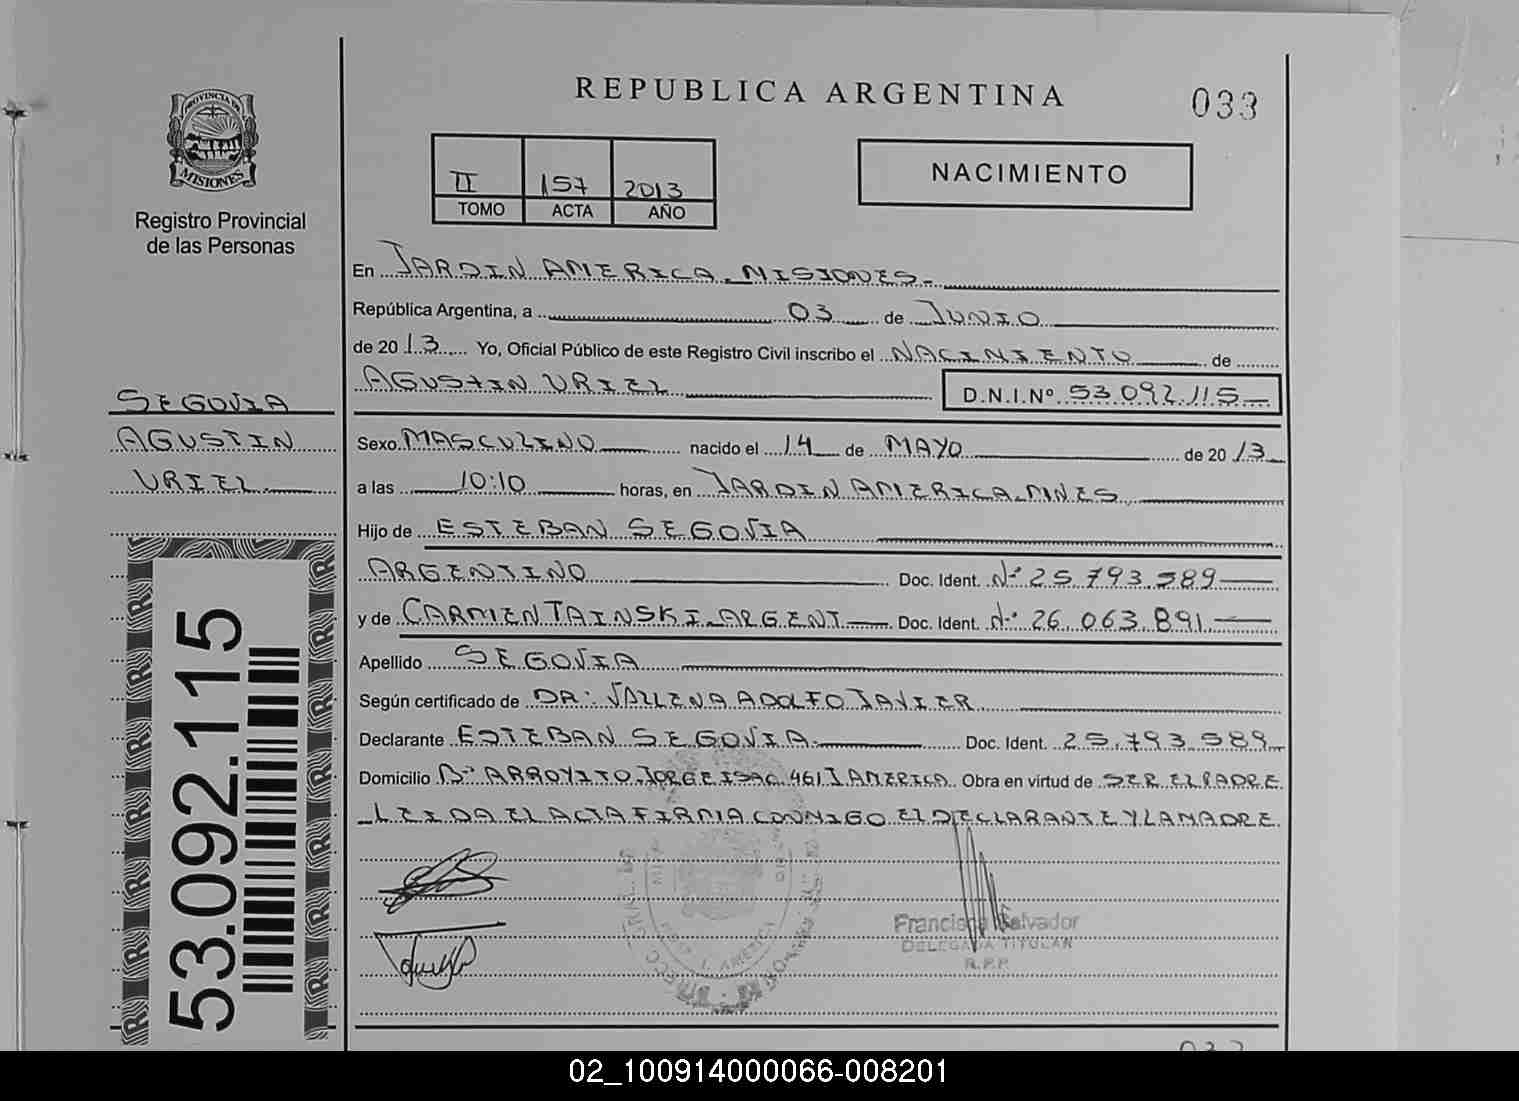 REPUBLICA ARGENTINA
033
PROVINCIA DE
MISIONES
Registro Provincial
de las Personas
NACIMIENTO
II 157 2013
TOMO ACTA AÑO
En JARDIN AMERICA - MISIONES -
República Argentina, a 03 de JUNIO
de 2013 Yo, Oficial Público de este Registro Civil inscribo el NACIMIENTO de
AGUSTIN URIEL D.N.I.Nº 53.092.115
SEGOVIA
AGUSTIN
URIEL
Sexo MASCULINO nacido el 14 de MAYO de 2013
a las 10:10 horas, en JARDIN AMERICA - MNES
Hijo de ESTEBAN SEGOVIA
ARGENTINO Doc. Ident. Nº 25.793.589
y de CARMEN TAINSKI - ARGENT Doc. Ident. Nº 26.063.891
Apellido SEGOVIA
Según certificado de DR: VALLENA ADOLFO JAVIER
Declarante ESTEBAN SEGOVIA Doc. Ident. 25.793.589
Domicilio Bº ARROYITO JORGE ISAC 461 J AMERICA Obra en virtud de SER EL PADRE
LEIDA EL ACTA FIRMA CONMIGO EL DECLARANTE Y LA MADRE
53.092.115
Francisca Salvador
DELEGADA TITULAR
R.P.P.
02_100914000066-008201